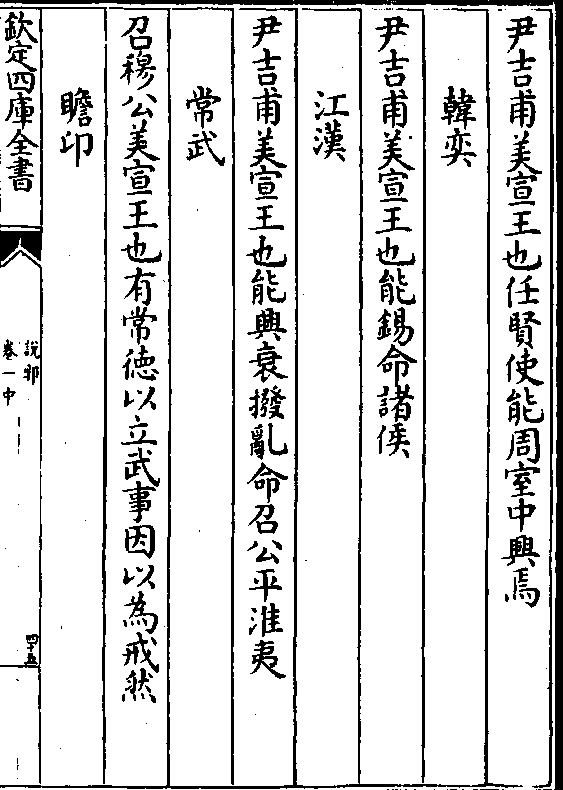 尹吉甫美宣王也任賢使能周室中興焉
韓奕
尹吉甫美宣王也能錫命諸侯
江漢
尹吉甫美宣王也能興衰撥亂命召公平淮夷
常武
召穆公美宣王也有常德以立武事因以為戒然
瞻卬
欽定四庫全書
說郛
卷一中
四十五